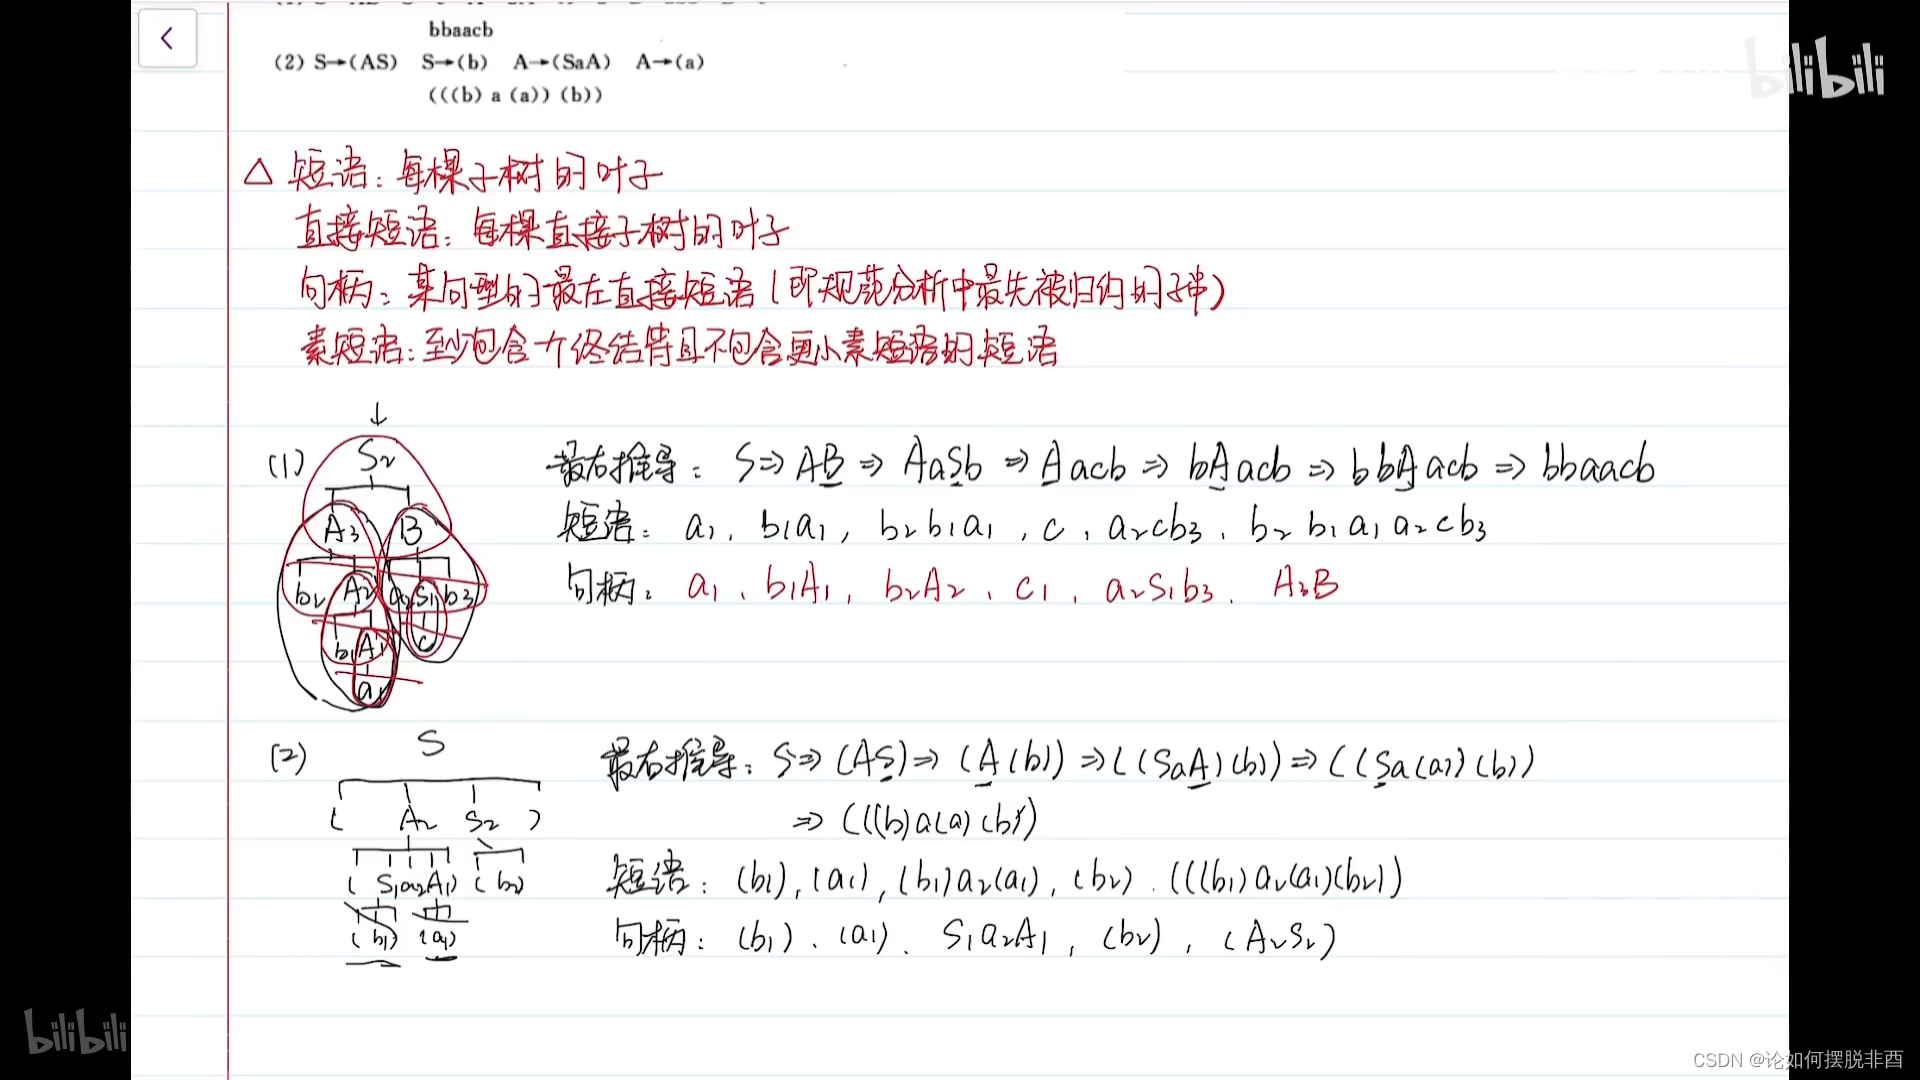 bbaacb
(2) S→(AS) S→(b) A→(SaA) A→(a)
(((b) a (a)) (b))
bilibili
△ 短语: 每棵子树的叶子
直接短语: 每棵直接子树的叶子
句柄: 某句型的最左直接短语 (即规范分析中最先被归约的子串)
素短语: 至少包含一个终结符且不包含更小素短语的短语
(1)
S₂
A₃ B
b₂ A₂ a₂ S₁ b₃
b₁ A₁ c
a₁
最右推导: S⇒AB⇒AaSb⇒Aacb⇒bAacb⇒bbAacb⇒bbaacb
短语: a₁, b₁a₁, b₂b₁a₁, c, a₂cb₃, b₂b₁a₁a₂cb₃
句柄: a₁、b₁A₁, b₂A₂、c₁、a₂S₁b₃、A₃B
(2)
S
( A₂ S₂ )
( S₁a₂A₁) ( b₂)
( b₁) (a₁)
最右推导: S⇒(AS)⇒(A(b))⇒((SaA)(b))⇒((Sa(a))(b))
⇒(((b)a(a)(b))
短语: (b₁), (a₁), (b₁)a₂(a₁), (b₂). (((b₁)a₂(a₁)(b₂))
句柄: (b₁)、(a₁)、S₁a₂A₁, (b₂), (A₂S₂)
bilibili
CSDN @论如何摆脱非酉